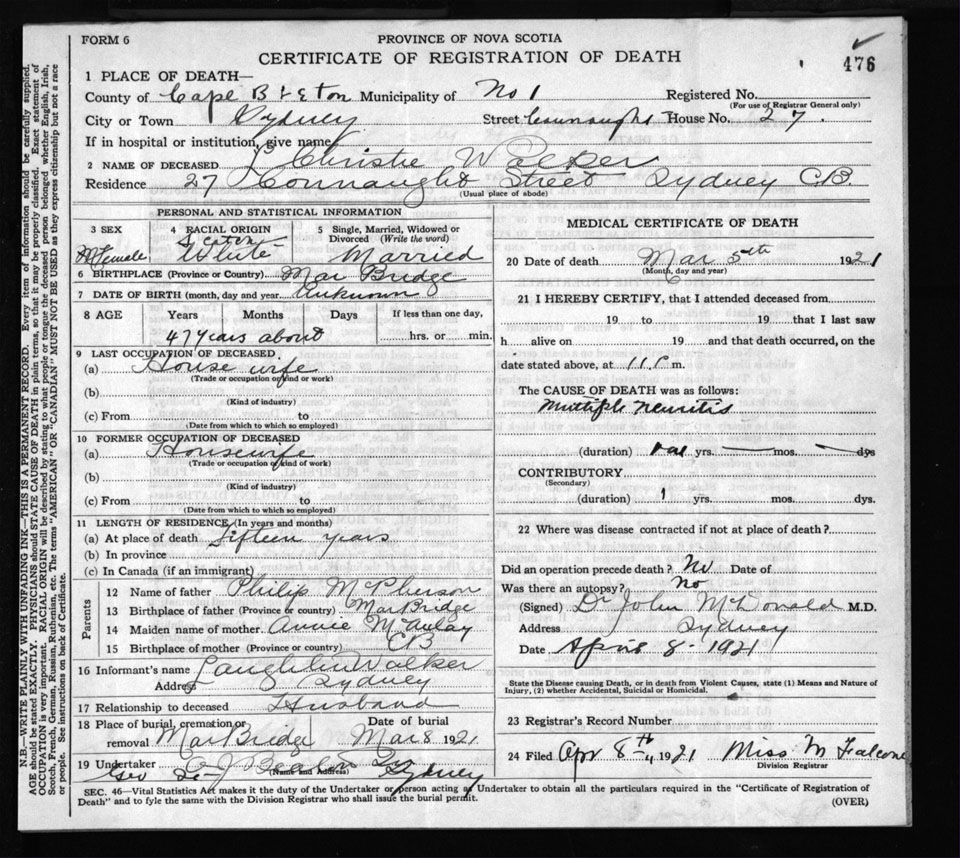 FORM 6
PROVINCE OF NOVA SCOTIA
CERTIFICATE OF REGISTRATION OF DEATH
476
1 PLACE OF DEATH—
County of Cape Breton Municipality of No 1 Registered No.
(For use of Registrar General only)
City or Town Sydney Street Connaught House No. 27.
If in hospital or institution, give name
2 NAME OF DECEASED Christie Walker
Residence 27 Connaught Street Sydney C.B.
(Usual place of abode)
PERSONAL AND STATISTICAL INFORMATION
3 SEX
Female
4 RACIAL ORIGIN
Scotch
White
5 Single, Married, Widowed or Divorced (Write the word)
Married
6 BIRTHPLACE (Province or Country) Mar Bridge
7 DATE OF BIRTH (month, day and year Unknown
8 AGE Years Months Days If less than one day,
47 years about hrs. or min.
9 LAST OCCUPATION OF DECEASED.
(a) House wife
(Trade or occupation or kind or work)
(b)
(Kind of industry)
(c) From to
(Date from which to which so employed)
10 FORMER OCCUPATION OF DECEASED
(a) Housewife
(Trade or occupation or kind or work)
(b)
(Kind of industry)
(c) From to
(Date from which to which so employed)
11 LENGTH OF RESIDENCE (In years and months)
(a) At place of death fifteen years
(b) In province
(c) In Canada (if an immigrant)
Parents
12 Name of father Philip McPherson
13 Birthplace of father (Province or country) Mar Bridge
14 Maiden name of mother Annie McAulay
15 Birthplace of mother (Province or country) CB
16 Informant's name Laughlin Walker
Address Sydney
17 Relationship to deceased Husband
18 Place of burial, cremation or removal Mar Bridge
Date of burial Mar 8 1921
19 Undertaker Beaton Sydney
(Name and Address)
MEDICAL CERTIFICATE OF DEATH
20 Date of death Mar 5th 1921
(Month, day and year)
21 I HEREBY CERTIFY, that I attended deceased from
19 to 19 that I last saw
h alive on 19 and that death occurred, on the
date stated above, at 11 P m.
The CAUSE OF DEATH was as follows:
Multiple neuritis
(duration) yrs. mos. dys
CONTRIBUTORY
(Secondary)
(duration) 1 yrs. mos. dys.
22 Where was disease contracted if not at place of death?
Did an operation precede death? No Date of
Was there an autopsy? No
(Signed) Dr John McDonald M.D.
Address Sydney
Date April 8 - 1921
State the Disease causing Death, or in death from Violent Causes, state (1) Means and Nature of
Injury, (2) whether Accidental, Suicidal or Homicidal.
23 Registrar's Record Number
24 Filed Apr 8th 1921 Miss M Falcone
Division Registrar
SEC. 46—Vital Statistics Act makes it the duty of the Undertaker or person acting as Undertaker to obtain all the particulars required in the "Certificate of Registration of
Death" and to fyle the same with the Division Registrar who shall issue the burial permit.
(OVER)
N.B.—WRITE PLAINLY WITH UNFADING INK—THIS IS A PERMANENT RECORD. Every item of information should be carefully supplied.
AGE should be stated EXACTLY. PHYSICIANS should STATE CAUSE OF DEATH in plain terms, so that it may be properly classified. Exact statement of
OCCUPATION is very important. RACIAL ORIGIN will be described by stating to what people or tongue the deceased person belonged whether English, Irish,
Scotch, French, German, Russian, Ruthenian, etc. The terms "AMERICAN" OR "CANADIAN" MUST NOT BE USED as they express citizenship but not a race
or people. See instructions on back of Certificate.